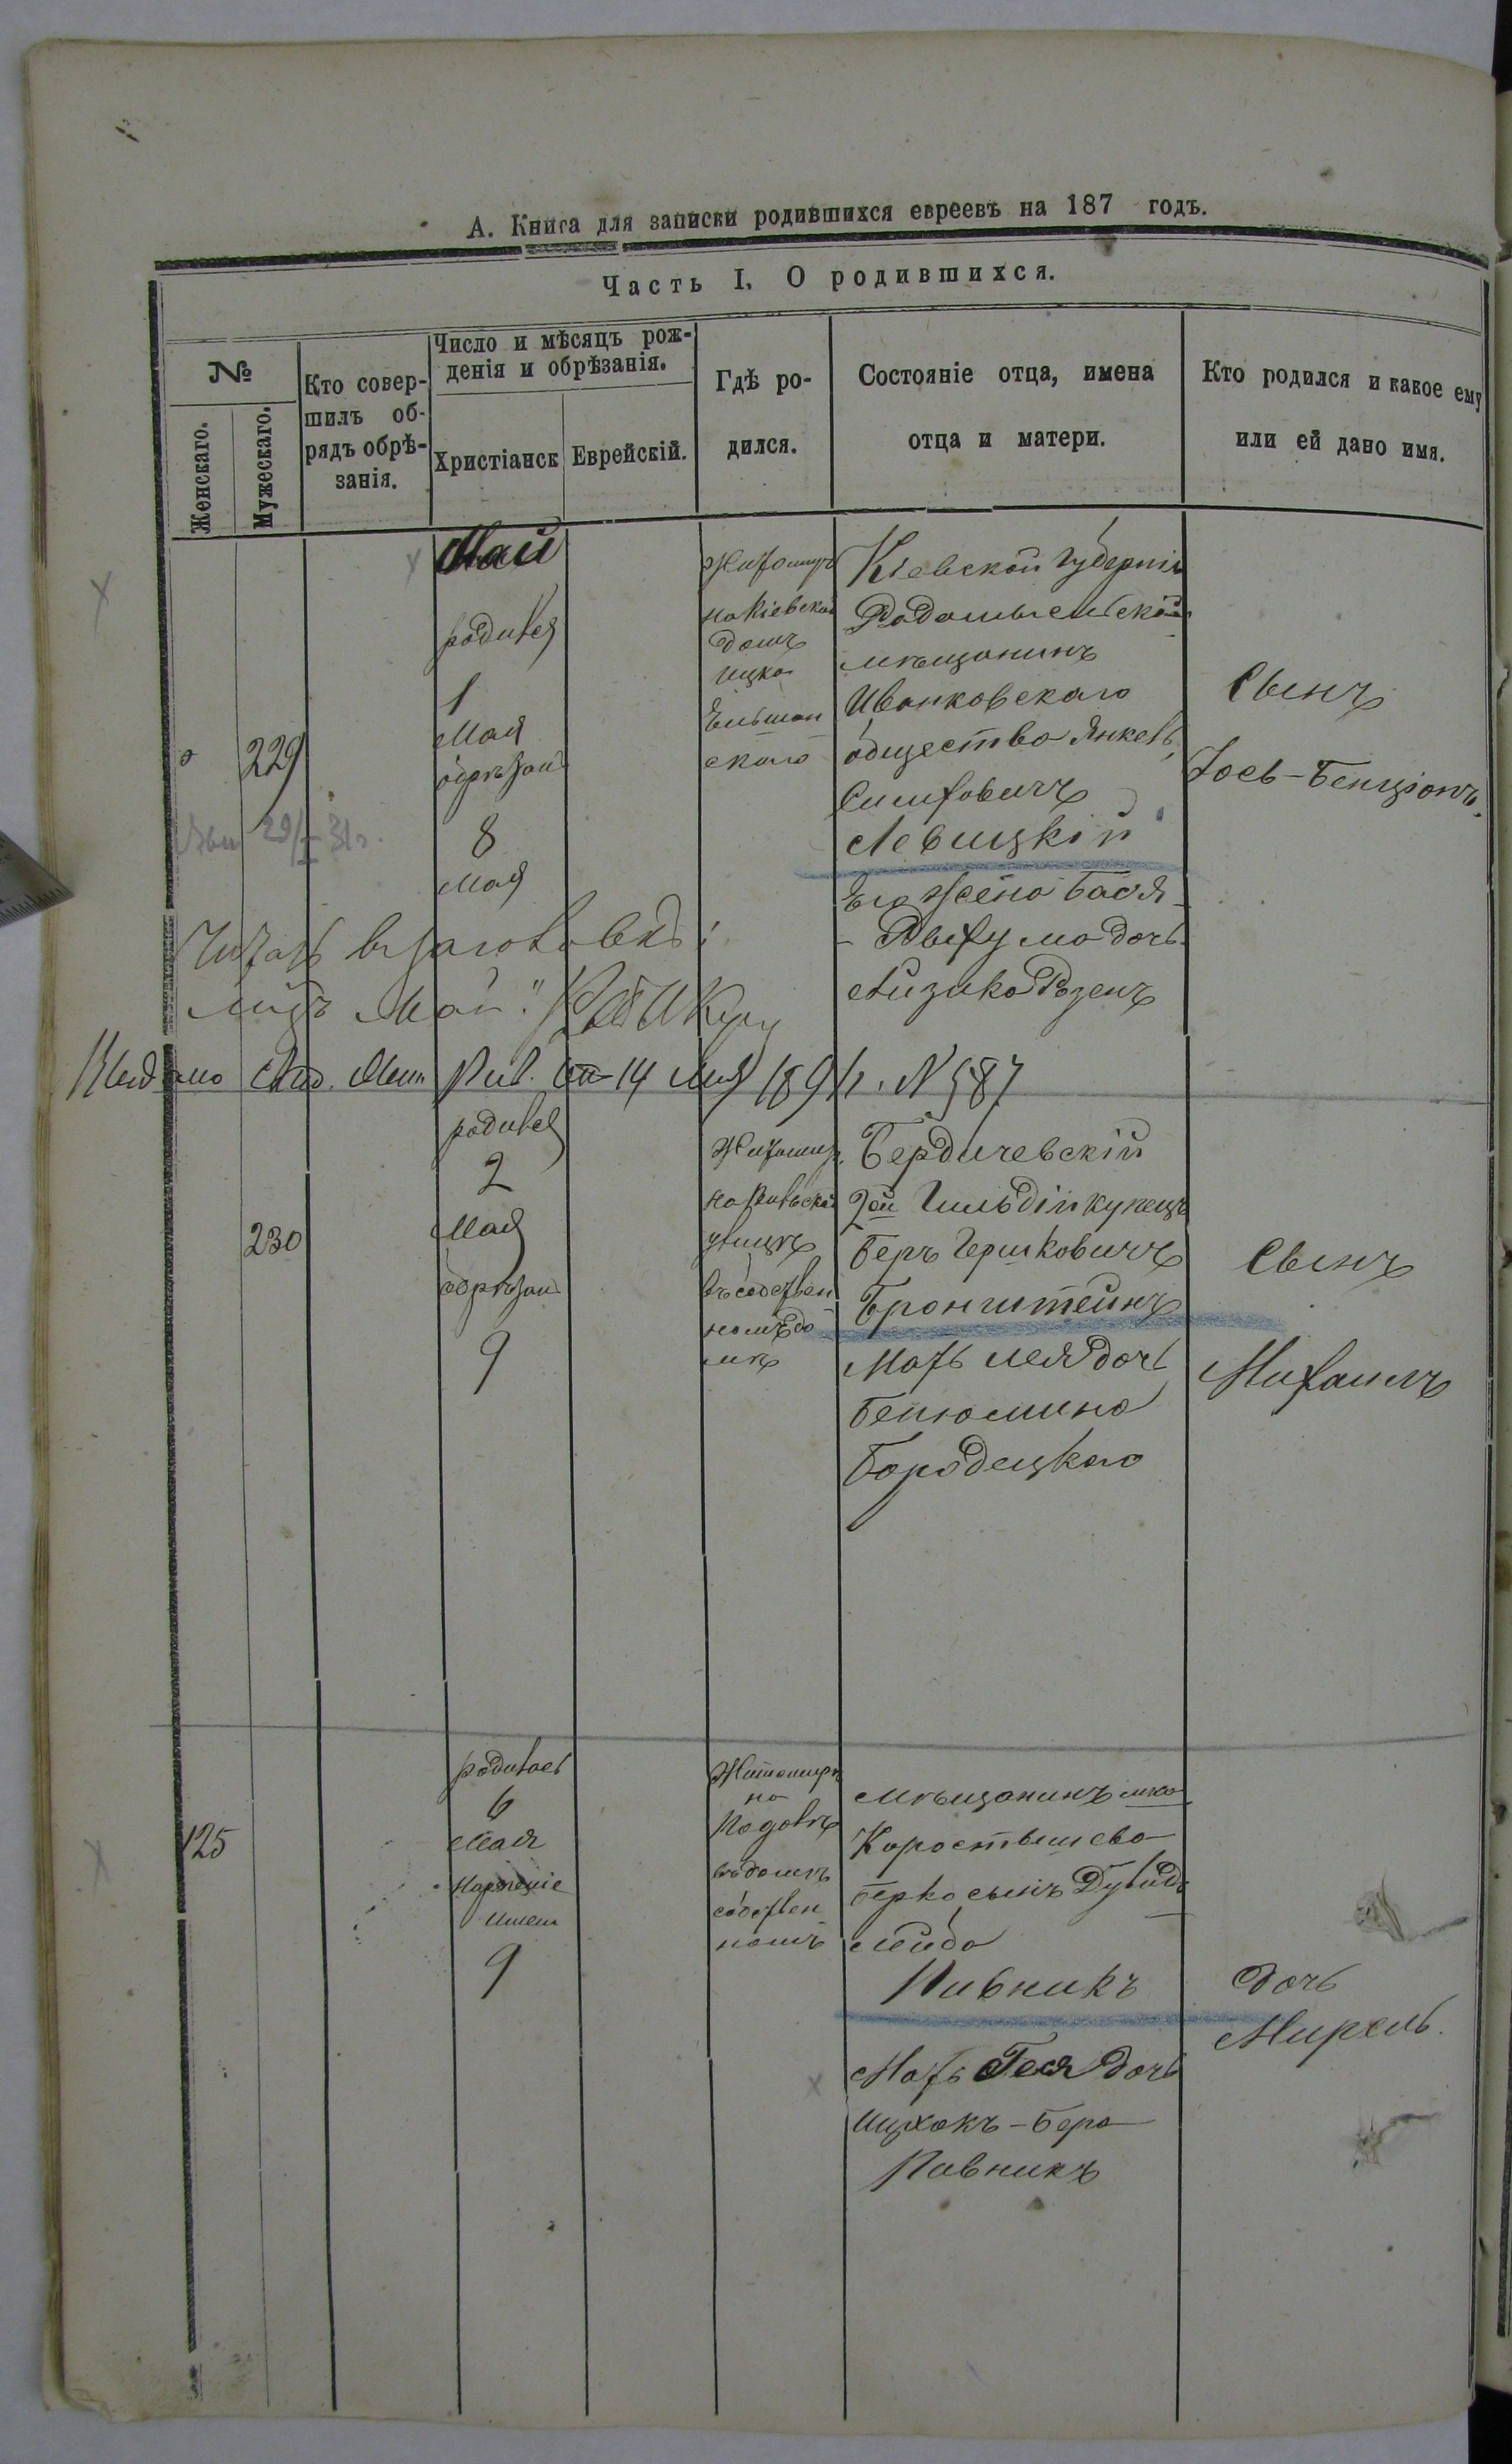 А. Книга для записки родившихся евреевъ на 187 годъ.
Часть I. О родившихся.
№
Женскаго.
Мужескаго.
Кто совер-
шилъ об-
рядъ обрѣ-
занія.
Число и мѣсяцъ рож-
денія и обрѣзанія.
Христіанск
Еврейскій.
Гдѣ ро-
дился.
Состояніе отца, имена
отца и матери.
Кто родился и какое ему
или ей дано имя.
229
Май
родился
1
Мая
обрѣзанъ
8
Мая
Житомиръ
на Кіевской
домъ
Ицка
скаго
Кіевской губерніи
Радомысльскій
мѣщанинъ
Иванковскаго
общества Янкель
Левицкій
Его жена Бася-
дочь
Айзика Розенъ
Сынъ
Іось-Бенціонъ.
29/I 31г.
Читать в заголовкѣ:
Май"
Выдано 14 Мая 1891 г. № 587
230
родился
2
Мая
обрѣзанъ
9
Житомиръ
на Кіевской
улицѣ
въ собствен
номъ до
мѣ
Бердичевскій
2ой Гильдіи купецъ
Беръ Гершковичъ
Бронштейнъ
Мать Лея дочь
Бенюмина
Бородецкаго
Сынъ
Михаилъ
125
родилась
6
Мая
Нареченіе
имени
9
Житомиръ
на
въ домѣ
собствен
номъ
мѣщанинъ мѣст
Коростышева
Берко сынъ Дувидъ
Лейба
Пивникъ
Мать Гея дочь
Ицхокъ-Бера
Пивникъ
Дочь
Мирель.